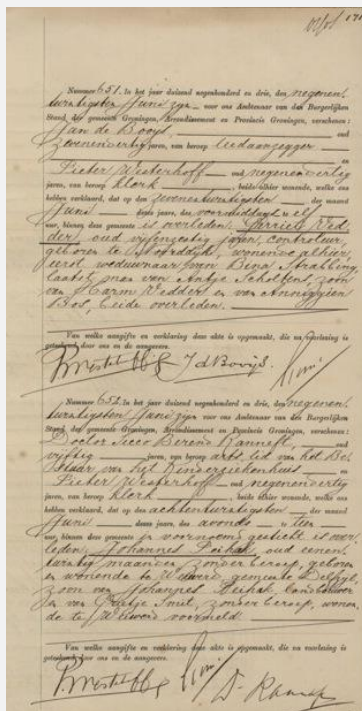 Nummer 651. In het jaar duizend negenhonderd en drie, den negenen
twintigsten Juni zijn voor ons Ambtenaar van den Burgerlijken
Stand der gemeente Groningen, Arrondissement en Provincie Groningen, verschenen:
Jan de Booys, oud
zevenendertig jaren, van beroep leedaanzegger
en
Pieter Westerhoff oud negenendertig
jaren, van beroep klerk, beide alhier wonende, welke ons
hebben verklaard, dat op den zevenentwintigsten der maand
Juni dezes jaars, des voormiddags te elf
ure, binnen deze gemeente is overleden Ved-
der, oud jaren, controleur,
geboren te Noorddijk, wonende alhier,
eerst weduwnaar van Bina Strabbing,
laatst man van Antje Scholtens, zoon
van Harm Vedder en van Annigjien
Bos, beide overleden.
Van welke aangifte en verklaring deze akte is opgemaakt, die na voorlezing is
geteekend door ons en de aangevers.
P. Westerhoff J d Booys
Nummer 652. In het jaar duizend negenhonderd en drie, den negenen
twintigsten Juni zijn voor ons Ambtenaar van den Burgerlijken
Stand der gemeente Groningen, Arrondissement en Provincie Groningen, verschenen:
Doctor Berend Ranneft, oud
vijftig jaren, van beroep arts, lid van het Be-
stuur van het Kinderziekenhuis en
Pieter Westerhoff oud negenendertig
jaren, van beroep klerk, beide alhier wonende, welke ons
hebben verklaard, dat op den achtentwintigsten der maand
Juni dezes jaars, des avonds te tien
ure, binnen deze gemeente in voornoemd gesticht is over-
leden, Johannes, oud eenen
twintig maanden, zonder beroep, geboren
en wonende te Weiwerd, gemeente Delfzijl,
zoon van Johannes, landbouwer
en van Grietje Smit, zonder beroep, wonen
de te Weiwerd voormeld.
Van welke aangifte en verklaring deze akte is opgemaakt, die na voorlezing is
geteekend door ons en de aangevers.
P. Westerhoff
Dr. Ranneft